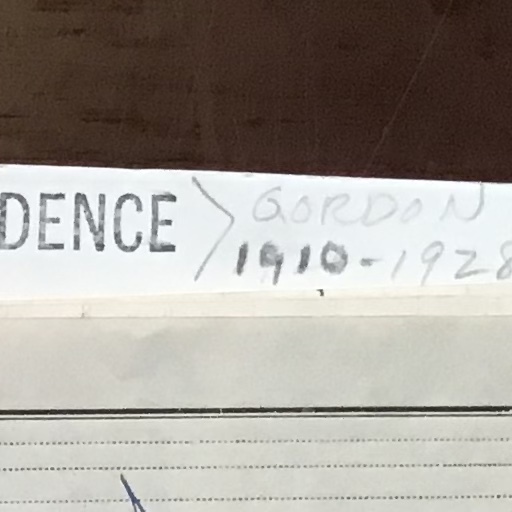 DENCE > GORDON
1910-1928